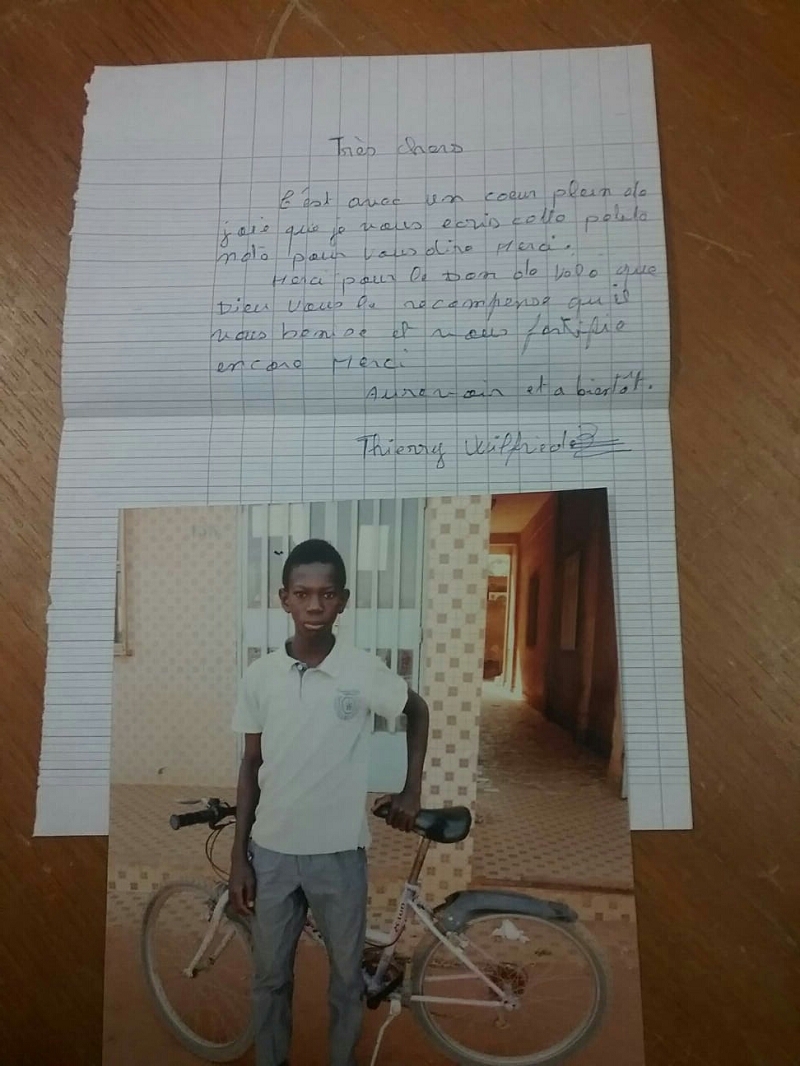 Très chers
C'est avec un coeur plein de
joie que je vous ecris cette petite
note pour vous dire Merci.
Merci pour le Don de Vélo que
Dieu vous le recompense qu'il
vous benise et vous fortifie
encore Merci
Aurevoir et a bientôt.
Thierry Wilfried